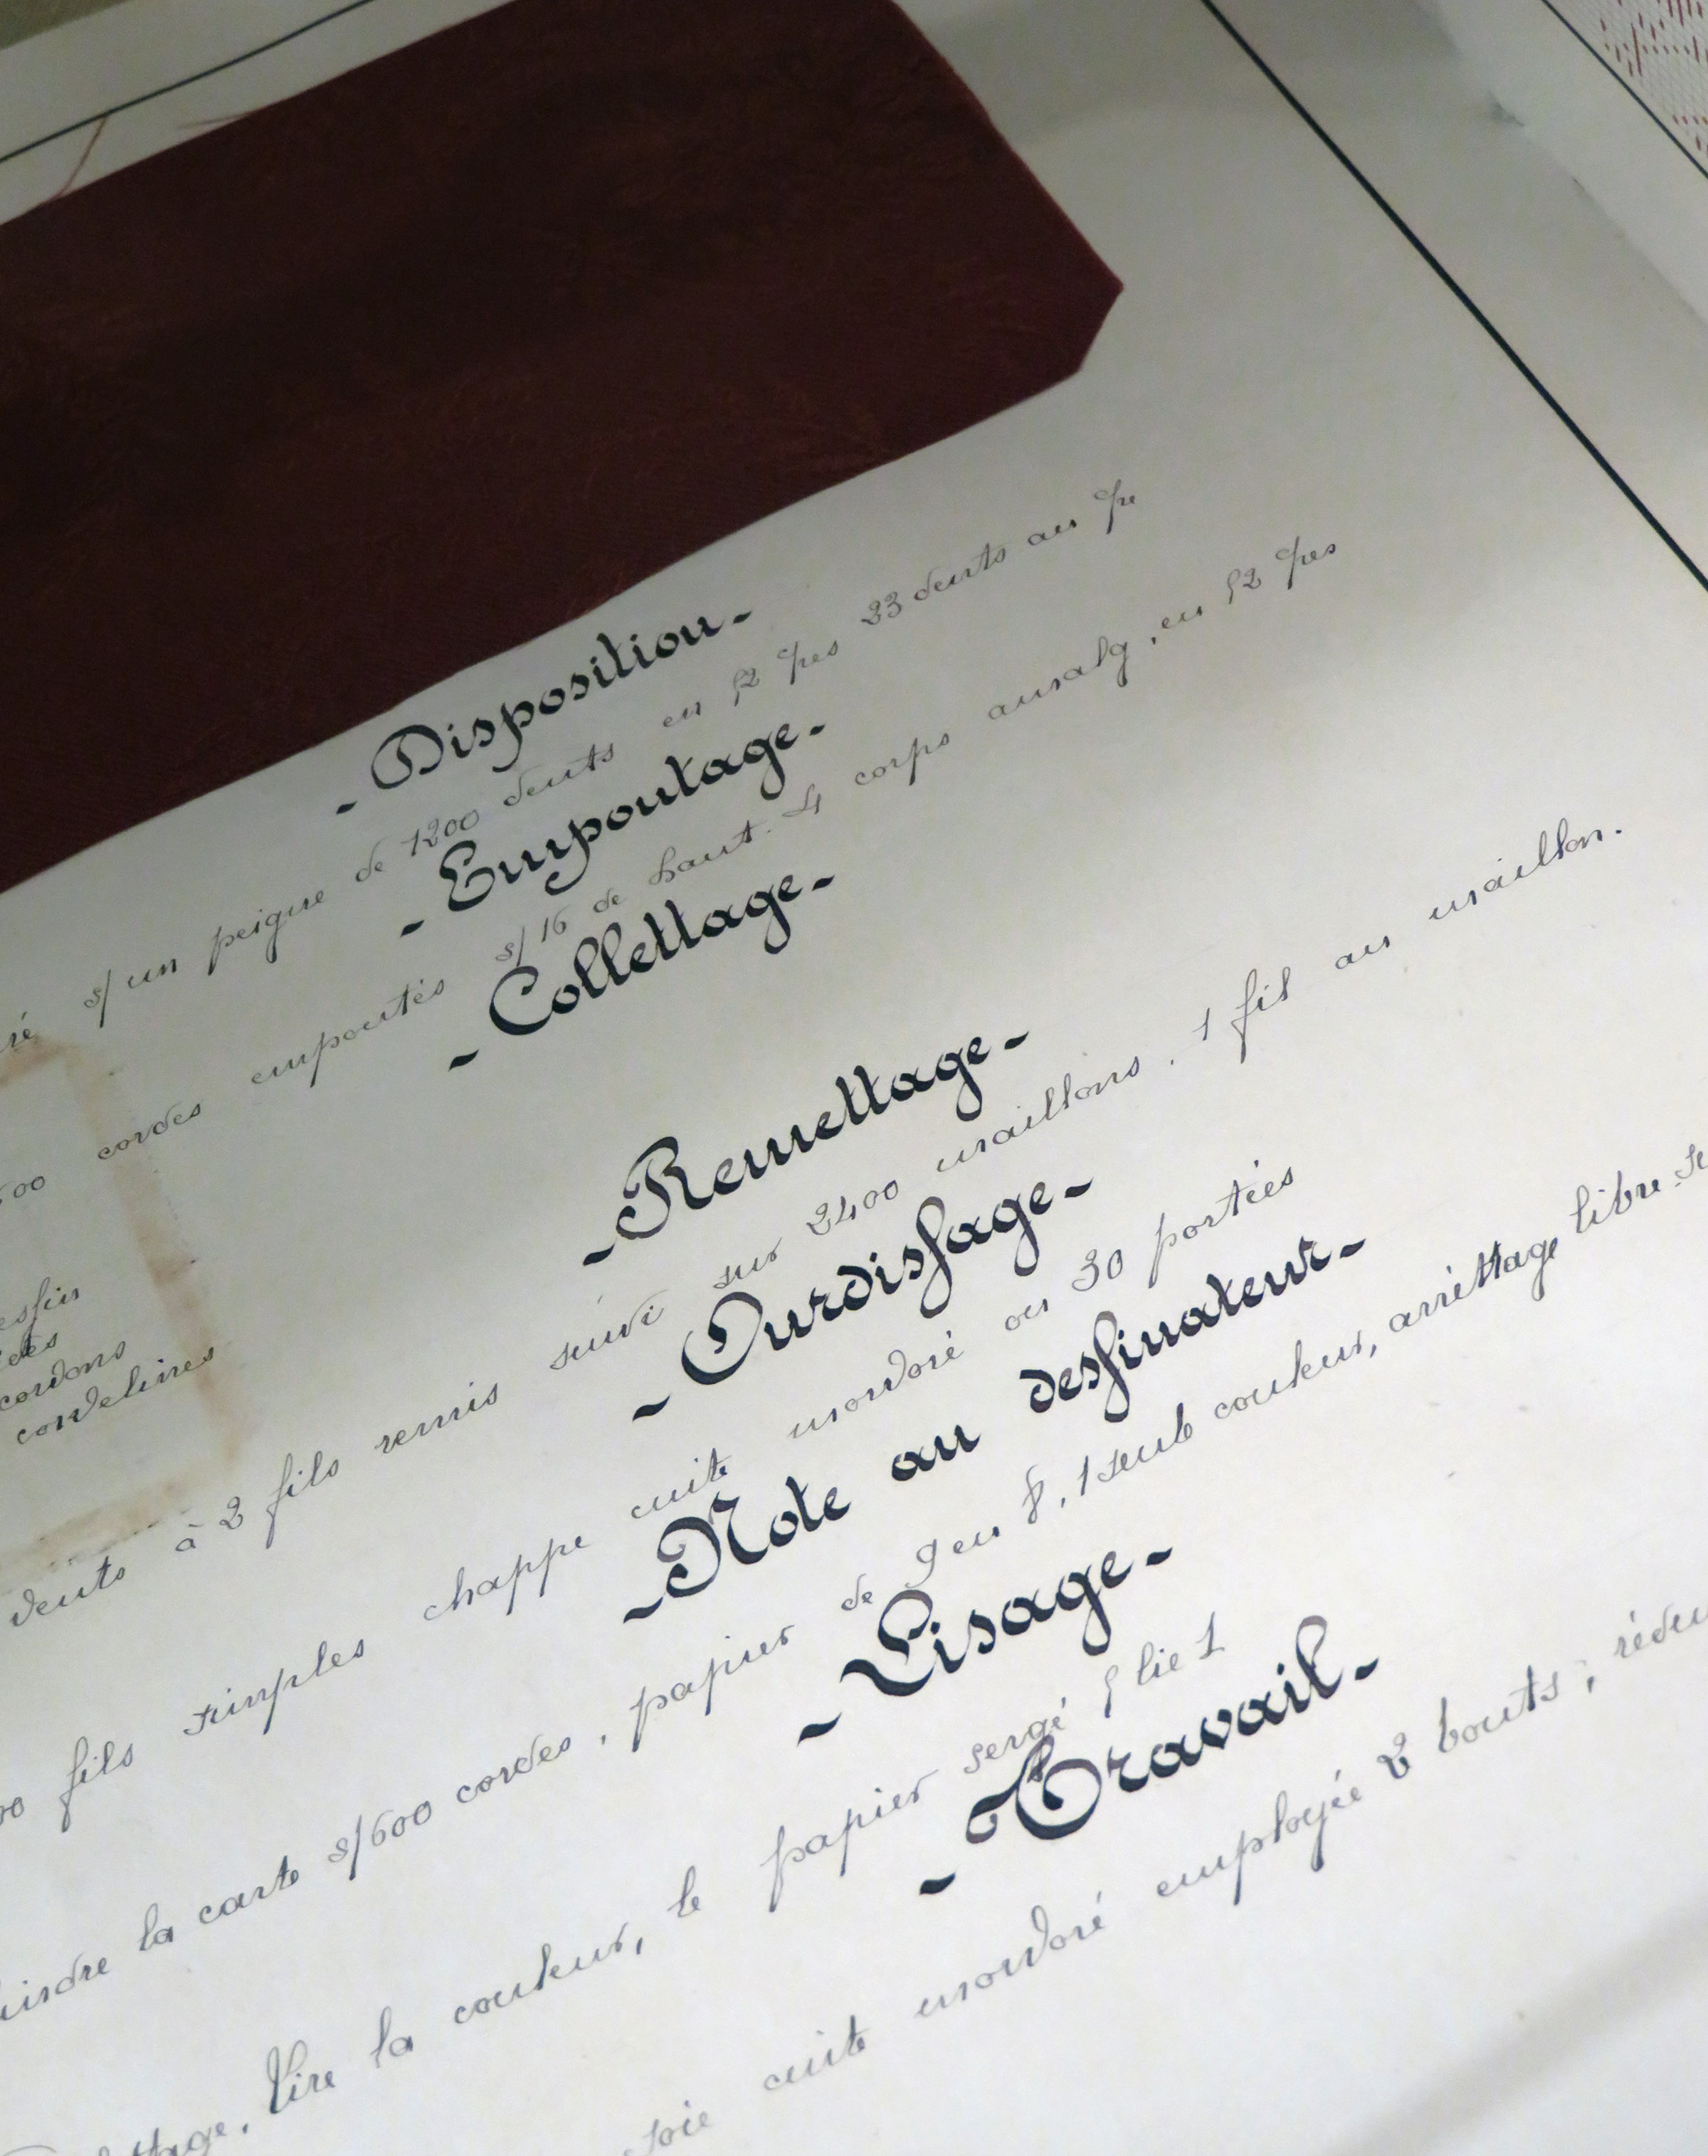 - Disposition -
s/ un peigne de 1200 dents en 52 %es 23 dents au %e
- Empoutage -
cordes empoutés s/ 16 de haut. 4 corps amalg, en 52 %es
- Collettage -
- Remettage -
dents à 2 fils remis suivi sur 2400 maillons. 1 fil au maillon.
- Ourdissage -
fils simples chappe cuite mordoré ou 30 portées
- Note au dessinateur -
la carte s/600 cordes, papier de 9 en 8, 1 seule couleur, arrêttage libre
- Lisage -
Lire la couleur, le papier sergé 5 lie 1
- Travail -
soie cuite mordoré employée 2 bouts,
cordons
cordelines